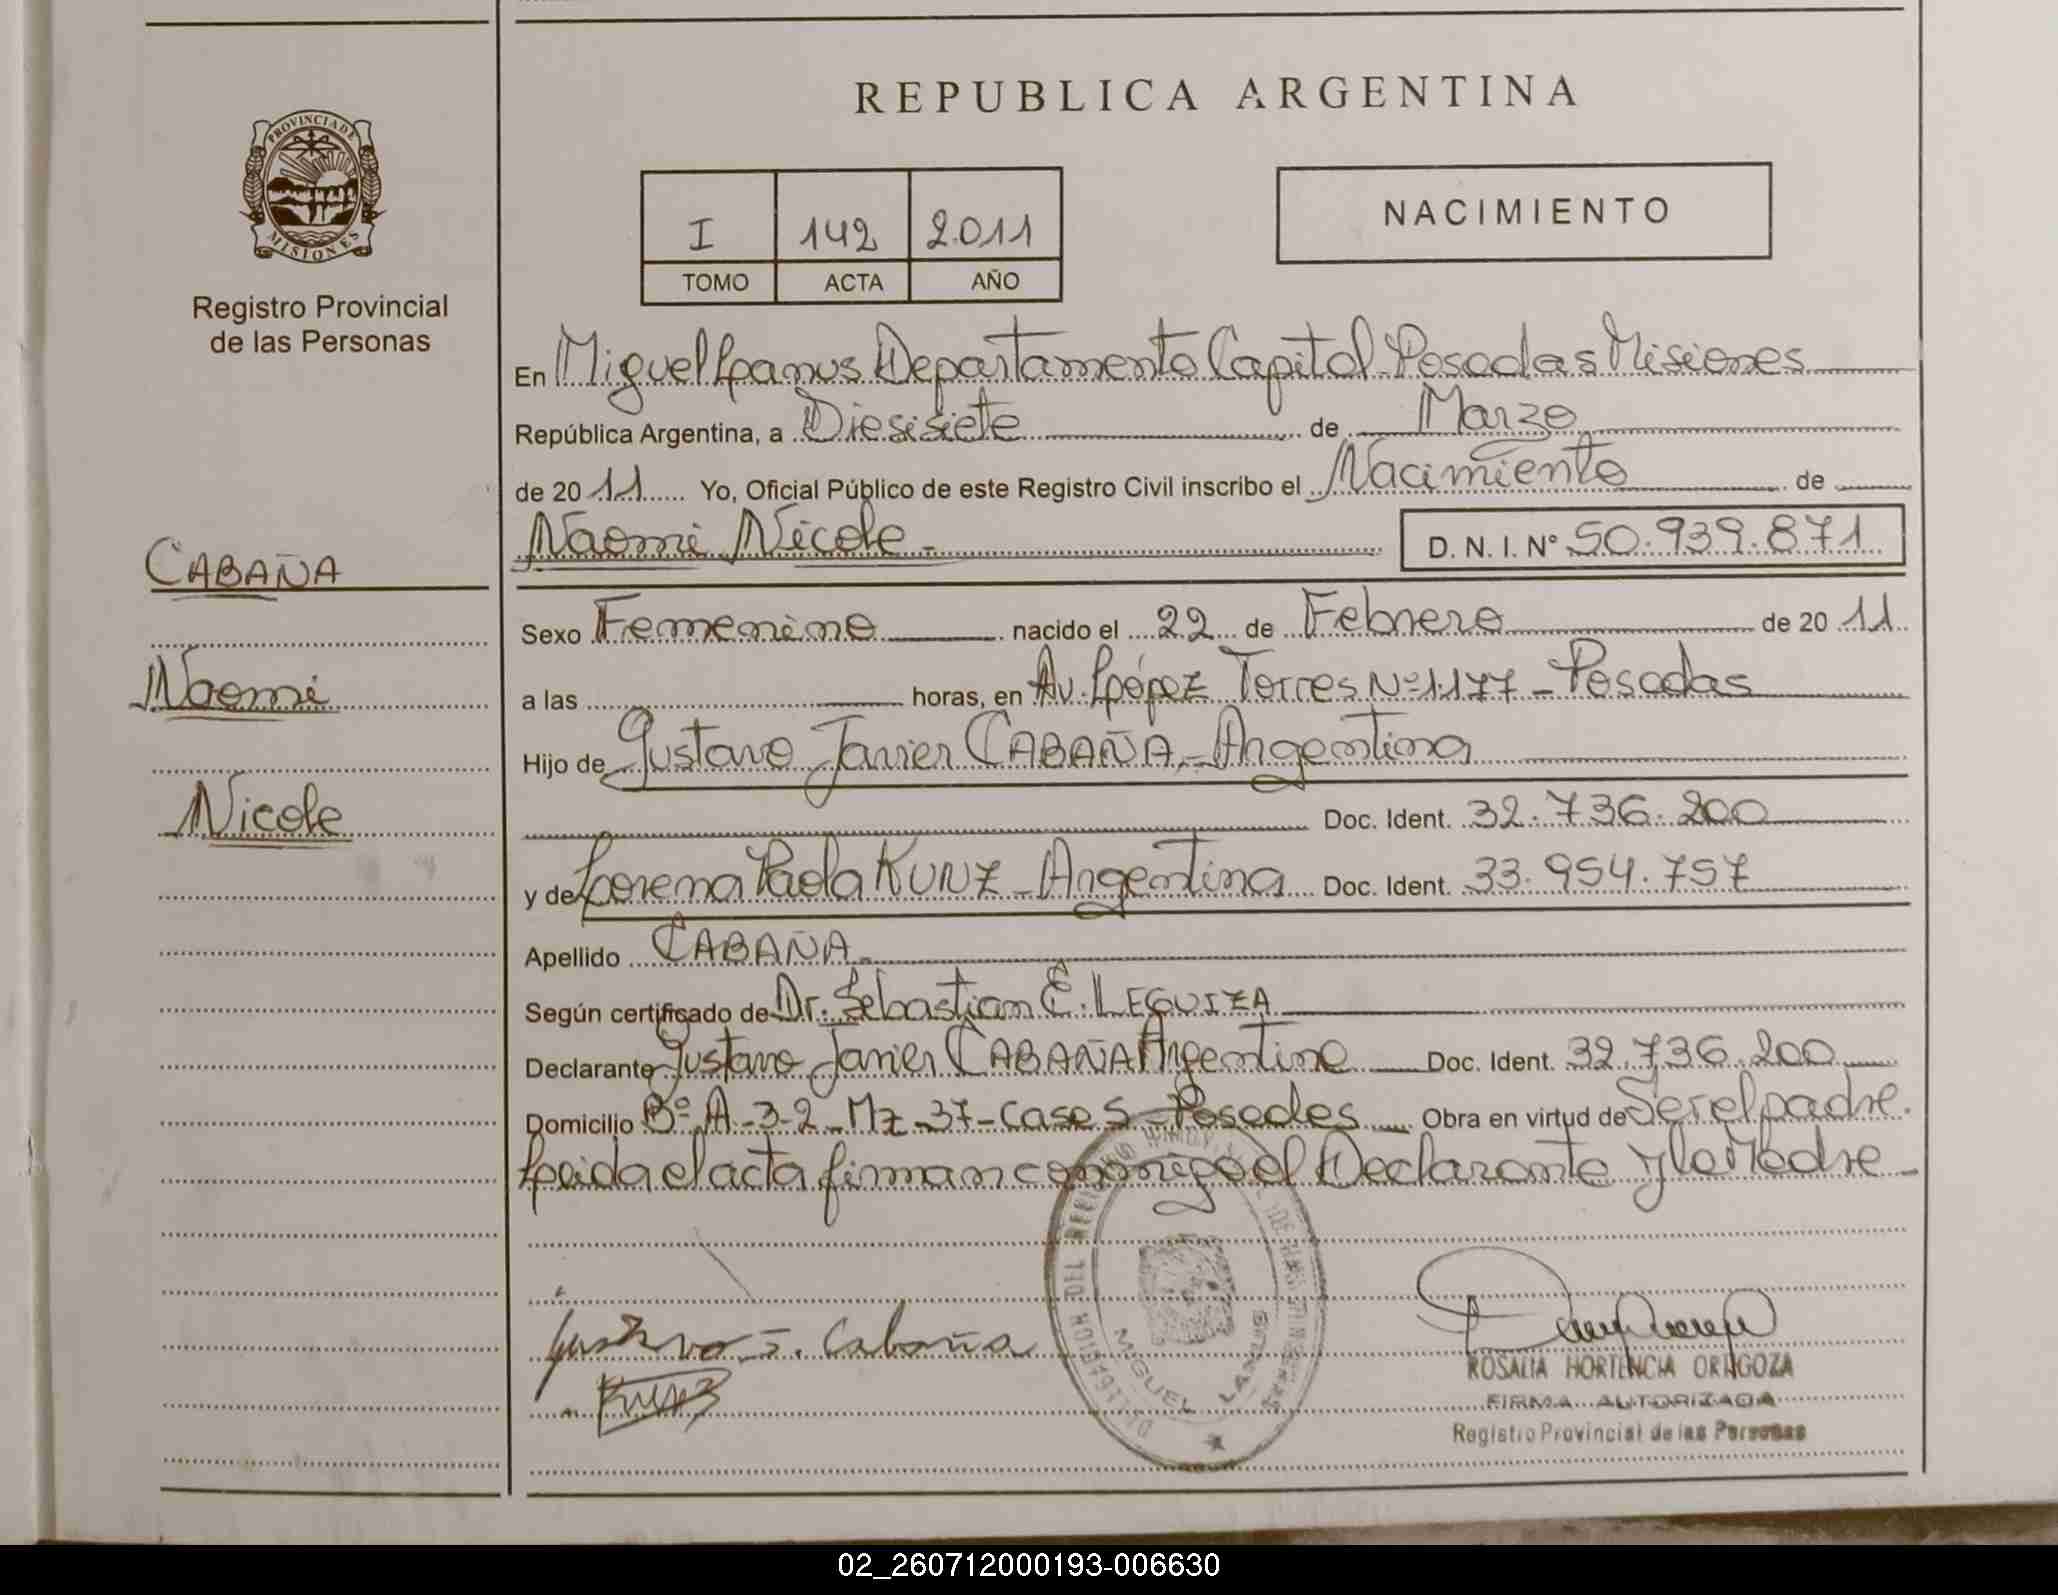 REPUBLICA ARGENTINA
PROVINCIA DE
MISIONES
Registro Provincial
de las Personas
I 142 2.011
TOMO ACTA AÑO
NACIMIENTO
En Miguel Lanus Departamento Capital Posadas Misiones
República Argentina, a Diesisiete de Marzo
de 20 11 Yo, Oficial Público de este Registro Civil inscribo el Nacimiento de
Naomi Nicole - D. N. I. N° 50.939.871
CABAÑA
Naomi
Nicole
Sexo Femenino nacido el 22 de Febrero de 20 11
a las horas, en Av. López Torres Nº 1177 - Posadas
Hijo de Gustavo Javier CABAÑA - Argentina
Doc. Ident. 32.736.200
y de Lorena Paola KUNZ - Argentina Doc. Ident. 33.954.757
Apellido CABAÑA -
Según certificado de Dr. Sebastian E. LEGUIZA
Declarante Gustavo Javier CABAÑA Argentino Doc. Ident. 32.736.200
Domicilio Bº A-3-2 - Mz - 37 - Case 5 - Posadas Obra en virtud de Ser el padre.
Leida el acta firman conmigo el Declarante y la Madre -
Gustavo J. Cabaña
Kunz
MIGUEL LANUS
ROSALIA HORTENCIA ORIGOZA
FIRMA AUTORIZADA
Registro Provincial de las Personas
02_260712000193-006630